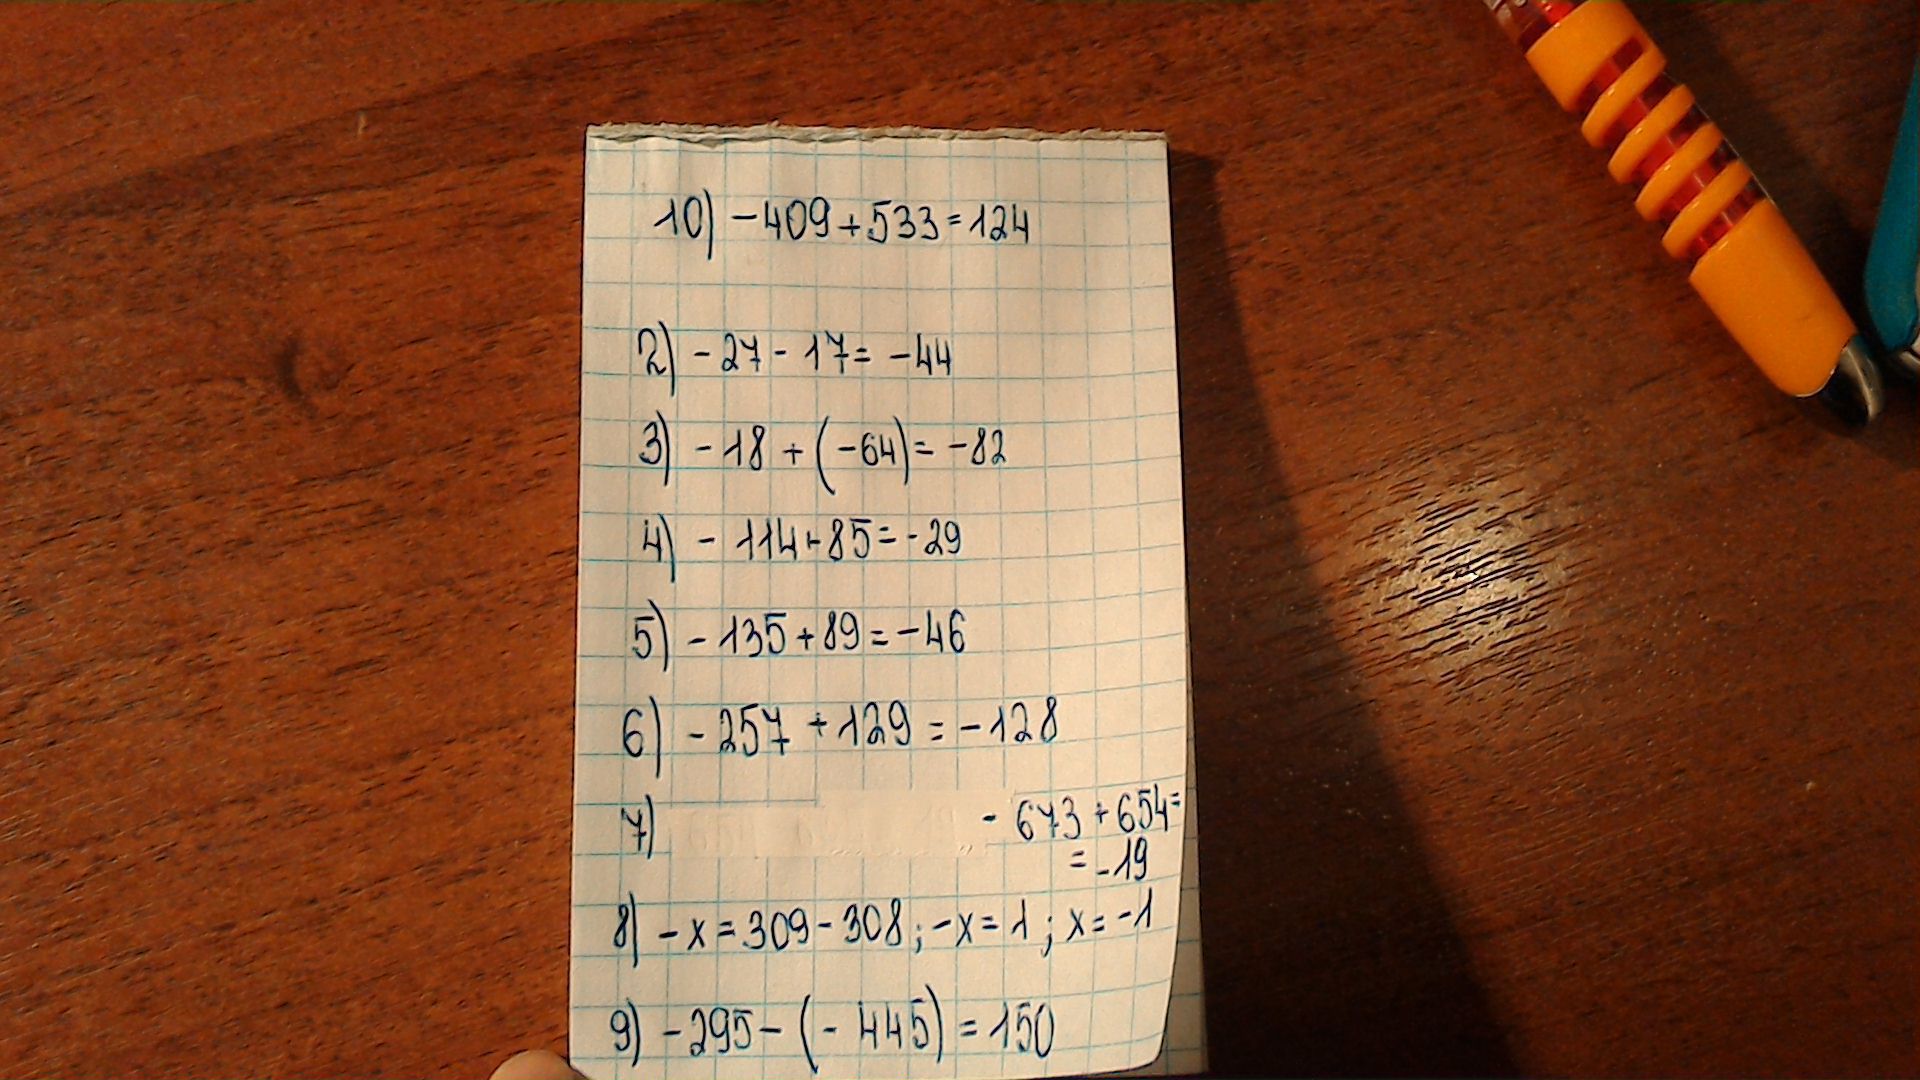 10) -409+533=124
2) -27-17= -44
3) -18+(-64)= -82
4) -114+85=-29
5) -135+89=-46
6) -257+129=-128
7) -673+654=
=-19
8) -x=309-308; -x=1; x=-1
9) -295-(-445)=150